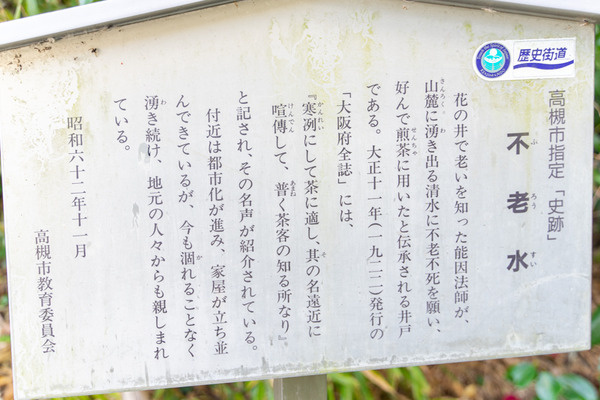 歴史街道
高槻市指定「史跡」
不老水
花の井で老いを知った能因法師が、
山麓に湧き出る清水に不老不死を願い、
好んで煎茶に用いたと伝承される井戸
である。大正十一年(一九二二)発行の
「大阪府全誌」には、
『寒冽にして茶に適し、其の名遠近に
喧傳して、普く茶客の知る所なり』。
と記され、その名声が紹介されている。
付近は都市化が進み、家屋が立ち並
んできているが、今も涸れることなく
湧き続け、地元の人々からも親しまれ
ている。
昭和六十二年十一月
高槻市教育委員会